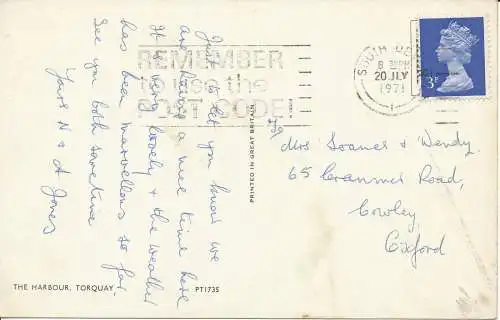 Just to let you know we
are having a nice time here
It is very lovely & the weather
has been marvellous so far.
See you both sometime
Yours N & A Jones
REMEMBER
to use the
POST CODE!
SOUTH DE
8 PM
20 JLY
1971
3P
Mrs Soanes & Wendy.
65 Cranmer Road,
Cowley
Oxford
PRINTED IN GREAT BRITAIN
THE HARBOUR, TORQUAY
PT1735